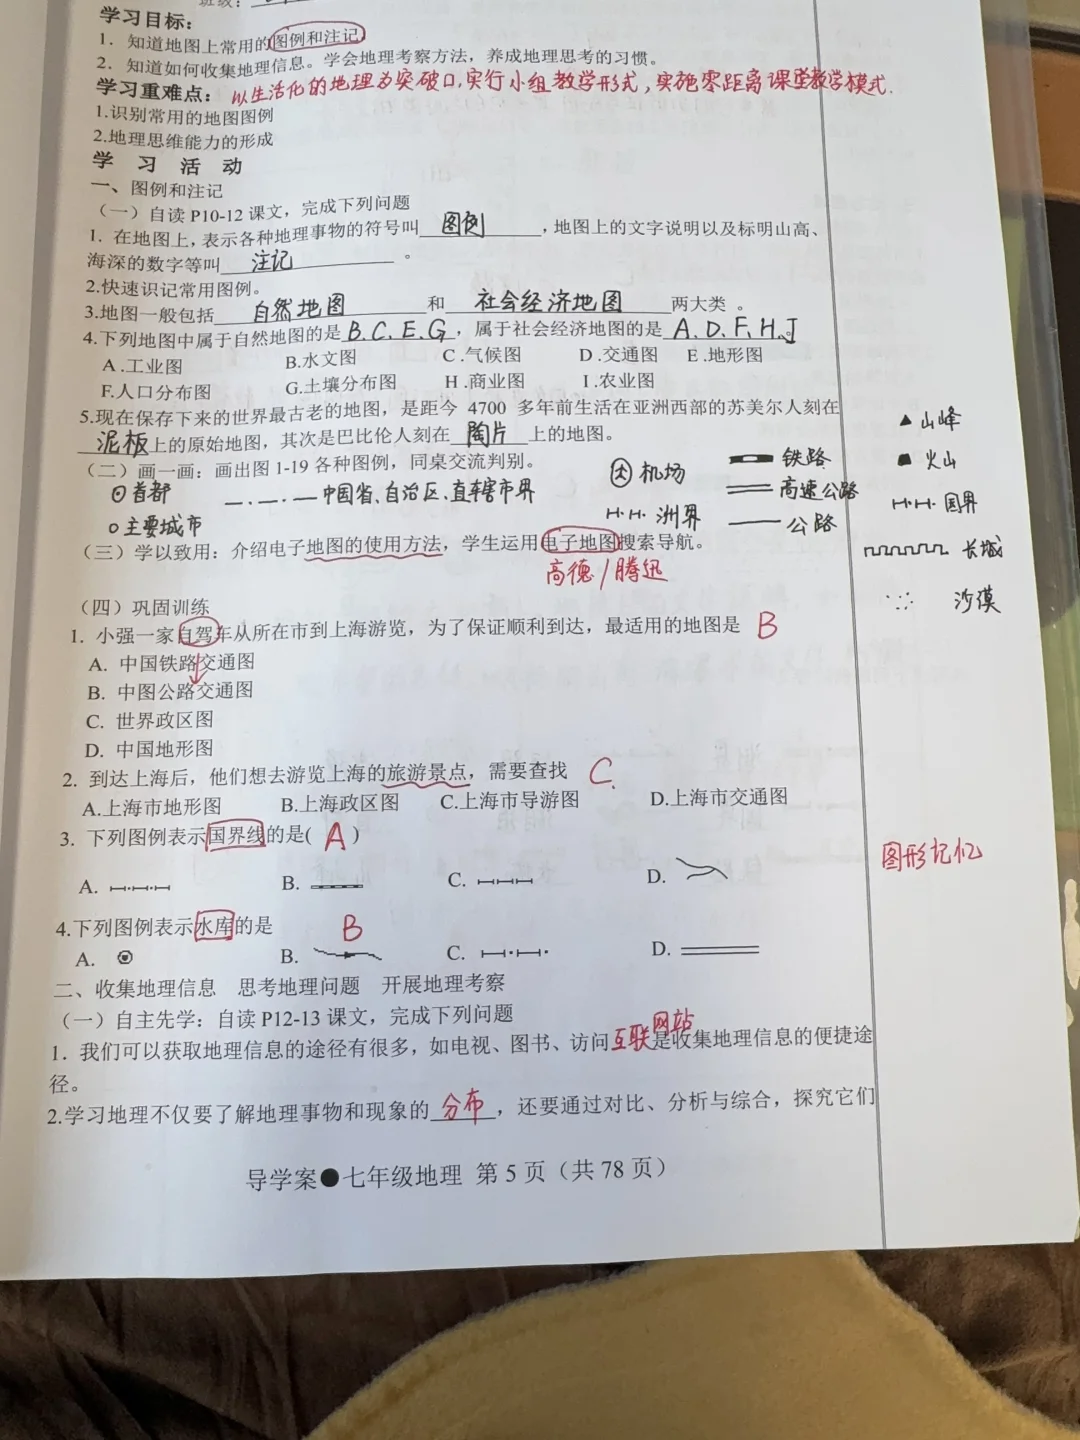 班级：
学习目标：
1. 知道地图上常用的图例和注记
2. 知道如何收集地理信息。学会地理考察方法，养成地理思考的习惯。
学习重难点： 以生活化的地理为突破口,实行小组教学形式,实施零距离课堂教学模式.
1.识别常用的地图图例
2.地理思维能力的形成
学 习 活 动
一、图例和注记
（一）自读 P10-12 课文，完成下列问题
1. 在地图上，表示各种地理事物的符号叫 图例 ，地图上的文字说明以及标明山高、
海深的数字等叫 注记 。
2.快速识记常用图例。
3.地图一般包括 自然地图 和 社会经济地图 两大类 。
4.下列地图中属于自然地图的是 B、C、E、G ，属于社会经济地图的是 A、D、F、H、I
A .工业图 B.水文图 C .气候图 D .交通图 E .地形图
F.人口分布图 G.土壤分布图 H .商业图 I .农业图
5.现在保存下来的世界最古老的地图，是距今 4700 多年前生活在亚洲西部的苏美尔人刻在
泥板 上的原始地图，其次是巴比伦人刻在 陶片 上的地图。
▲山峰
（二）画一画：画出图 1-19 各种图例，同桌交流判别。
机场 铁路 火山
首都 中国省、自治区、直辖市界 高速公路 国界
主要城市 洲界 公路
（三）学以致用：介绍电子地图的使用方法，学生运用电子地图搜索导航。
长城
高德/腾迅
沙漠
（四）巩固训练
1. 小强一家自驾车从所在市到上海游览，为了保证顺利到达，最适用的地图是 B
A. 中国铁路交通图
B. 中图公路交通图
C. 世界政区图
D. 中国地形图
2. 到达上海后，他们想去游览上海的旅游景点，需要查找 C
A.上海市地形图 B.上海政区图 C.上海市导游图 D.上海市交通图
3. 下列图例表示国界线的是( A )
图形记忆
A. B. C. D.
4.下列图例表示水库的是 B
A. B. C. D.
二、收集地理信息 思考地理问题 开展地理考察
（一）自主先学：自读 P12-13 课文，完成下列问题
1. 我们可以获取地理信息的途径有很多，如电视、图书、访问互联网站是收集地理信息的便捷途
径。
2.学习地理不仅要了解地理事物和现象的 分布 ，还要通过对比、分析与综合，探究它们
导学案●七年级地理 第 5 页（共 78 页）